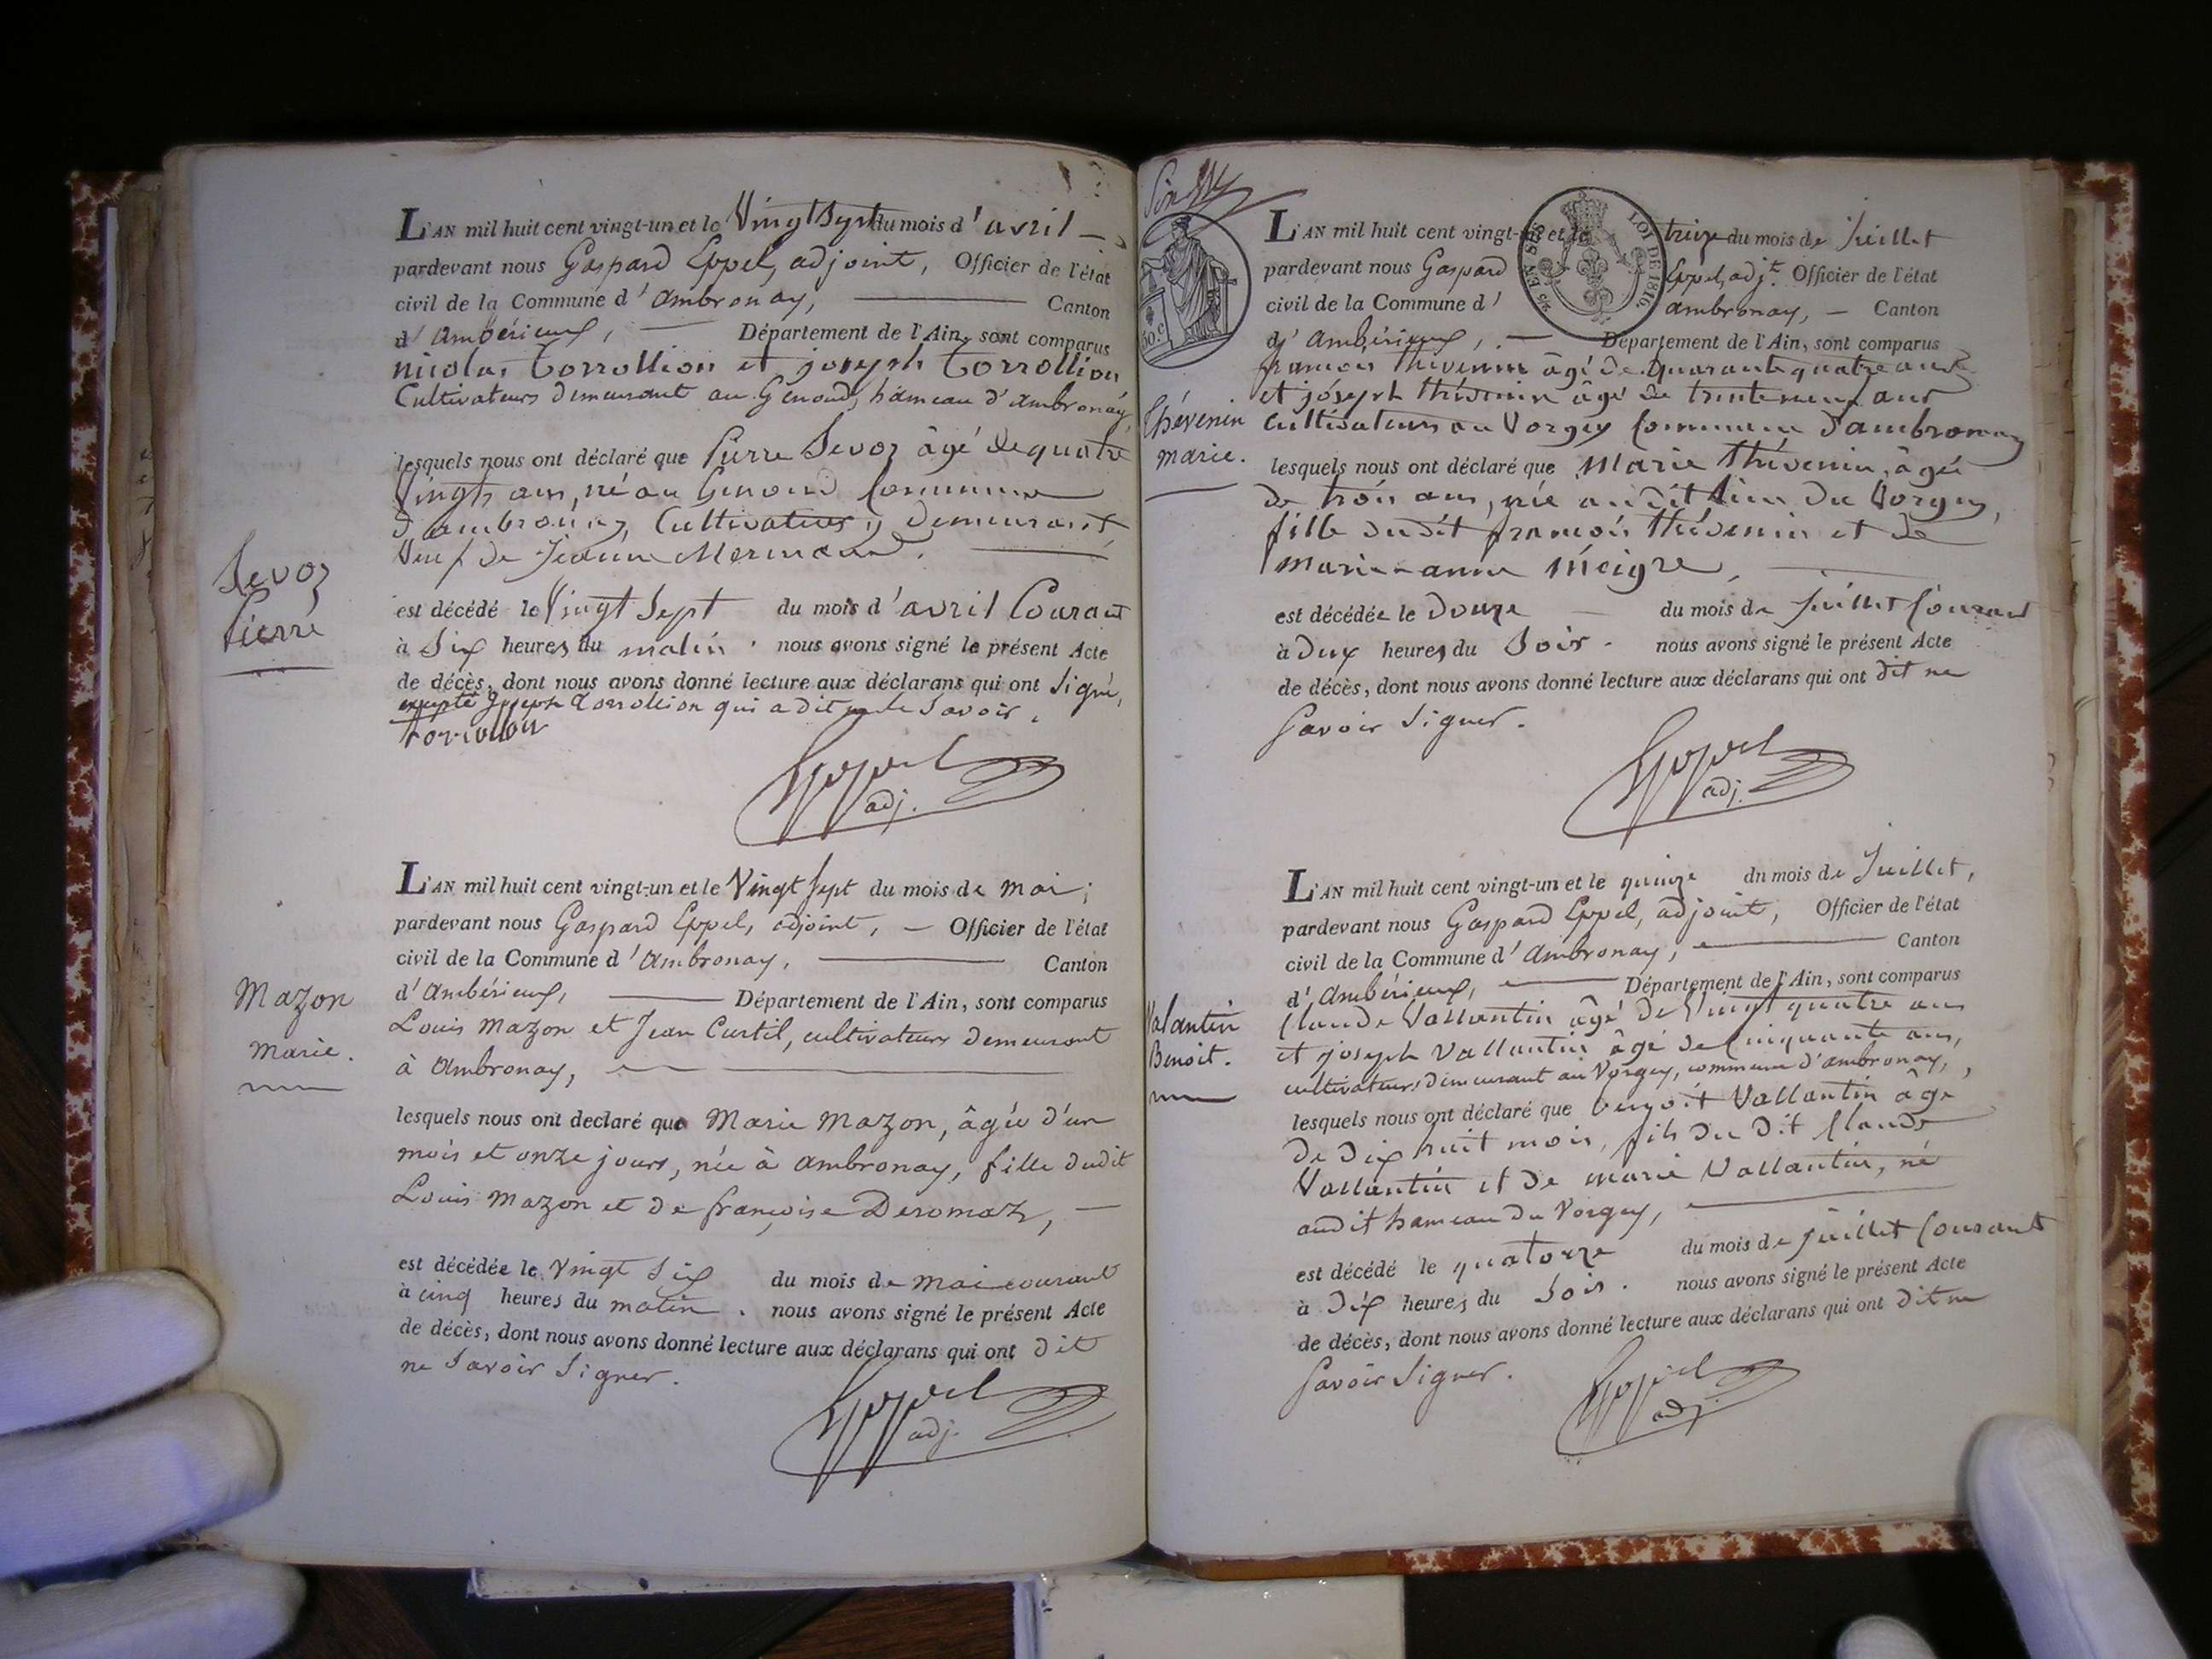 L'AN mil huit cent vingt-un et le Vingt Sept du mois d'avril
pardevant nous Gaspard Eppel, adjoint, Officier de l'état
civil de la Commune d'ambronay, Canton
d'ambérieux, Département de l'Ain, sont comparus
nicolas Corrollion et joseph Corrollion
Cultivateurs demeurant au Genoud, hameau d'ambronay
lesquels nous ont déclaré que Pierre Sevoz âgé de quatre
Vingts ans, né au Genoud Commune
d'ambronay, Cultivateur y demeurant,
Veuf de Jeanne Mermand.
Sevoz
Pierre
est décédé le Vingt Sept du mois d'avril Courant
à Six heures du matin. nous avons signé le présent Acte
de décès, dont nous avons donné lecture aux déclarans qui ont Signé,
excepté Joseph Corrollion qui a dit ne le Savoir.
Eppel
adj.
L'AN mil huit cent vingt-un et le Vingt Sept du mois de mai;
pardevant nous Gaspard Eppel, adjoint, Officier de l'état
civil de la Commune d'ambronay, Canton
d'ambérieux, Département de l'Ain, sont comparus
Mazon
marie.
Louis Mazon et Jean Curtil, cultivateurs demeurant
à ambronay,
lesquels nous ont declaré que Marie Mazon, âgée d'un
mois et onze jours, née à ambronay, fille dudit
Louis Mazon et de françoise Deromaz,
est décédée le Vingt Six du mois de mai courant
à cinq heures du matin. nous avons signé le présent Acte
de décès, dont nous avons donné lecture aux déclarans qui ont dit
ne Savoir Signer.
Eppel
adj.
L'AN mil huit cent vingt-un et le treize du mois de Juillet
pardevant nous Gaspard Eppel, adjt. Officier de l'état
civil de la Commune d'ambronay, Canton
d'ambérieux, Département de l'Ain, sont comparus
LOI DE 1816.
françois thévenin âgé de quarante quatre ans
et joseph thévenin âgé de trente neuf ans
Cultivateurs au Vorgey Commune d'ambronay
Thévenin
marie.
lesquels nous ont déclaré que Marie thévenin, âgée
de trois ans, née au dit lieu du Vorgey,
fille dudit françois thévenin et de
marie-anne Meigre,
est décédée le Douze du mois de Juillet Courant
à Deux heures du Soir. nous avons signé le présent Acte
de décès, dont nous avons donné lecture aux déclarans qui ont dit ne
Savoir Signer.
Eppel
adj.
L'AN mil huit cent vingt-un et le quinze du mois de Juillet,
pardevant nous Gaspard Eppel, adjoint, Officier de l'état
civil de la Commune d'ambronay, Canton
d'ambérieux, Département de l'Ain, sont comparus
Valantin
Benoit.
Claude Vallantin âgé de Vingt quatre ans
et joseph Vallantin âgé de Cinquante ans,
cultivateurs demeurant au Vorgey, commune d'ambronay,
lesquels nous ont déclaré que benoit Vallantin âgé
de dix huit mois, fils du dit Claude
Vallantin et de marie Vallantin, né
audit hameau du Vorgey,
est décédé le quatorze du mois de juillet Courant
à Dix heures du Soir. nous avons signé le présent Acte
de décès, dont nous avons donné lecture aux déclarans qui ont dit ne
Savoir Signer.
Eppel
adj.